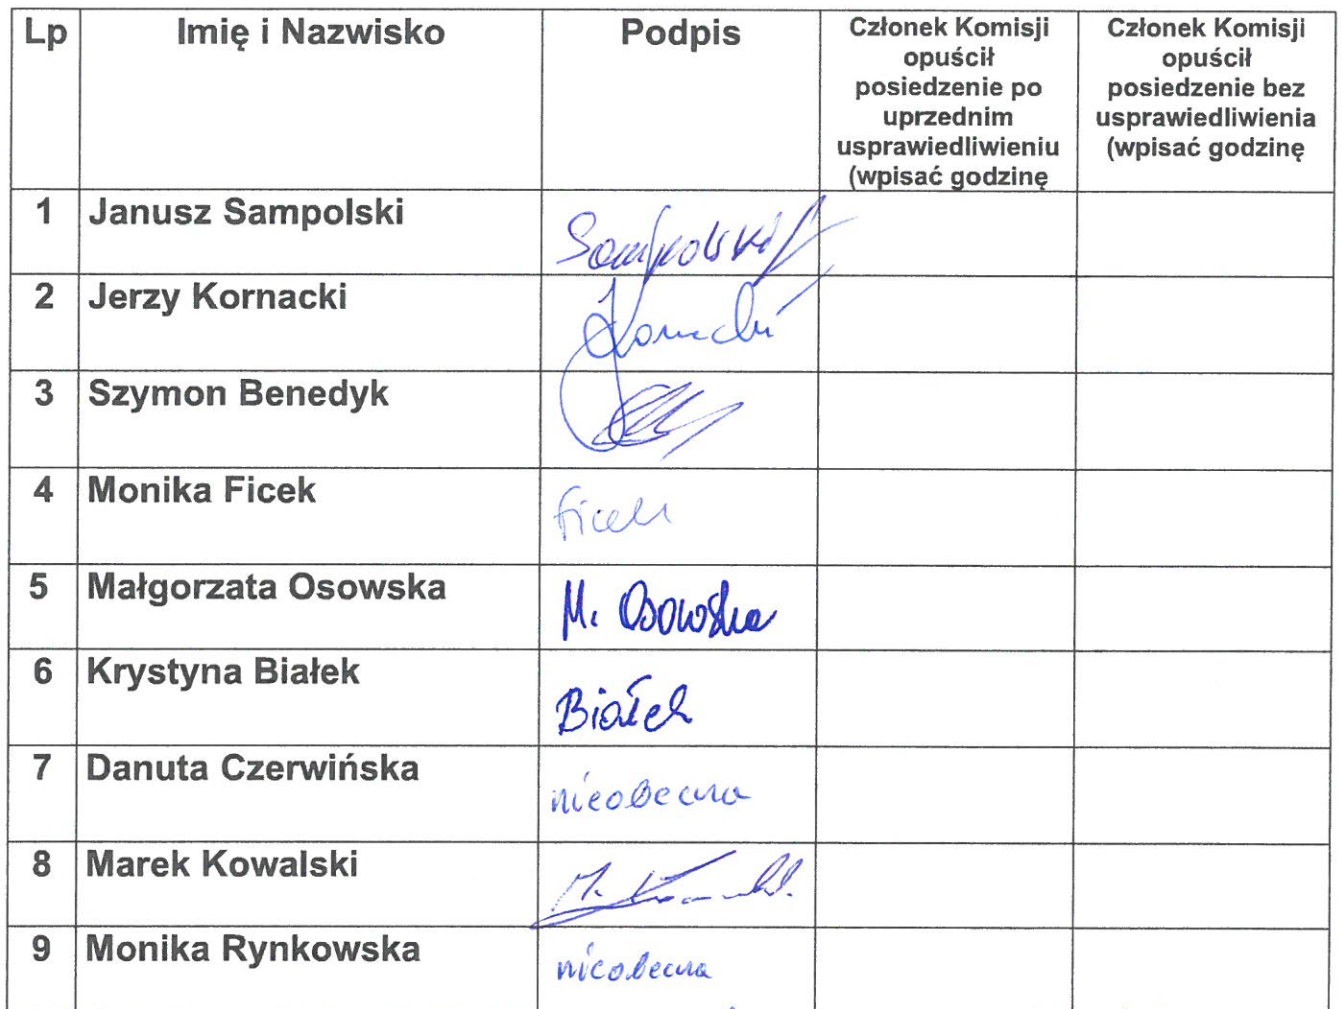 Lp Imię i Nazwisko Podpis Członek Komisji opuścił posiedzenie po uprzednim usprawiedliwieniu (wpisać godzinę Członek Komisji opuścił posiedzenie bez usprawiedliwienia (wpisać godzinę
1 Janusz Sampolski Sampolski
2 Jerzy Kornacki Kornacki
3 Szymon Benedyk
4 Monika Ficek Ficek
5 Małgorzata Osowska M. Osowska
6 Krystyna Białek Białek
7 Danuta Czerwińska nieobecna
8 Marek Kowalski M.
9 Monika Rynkowska nieobecna